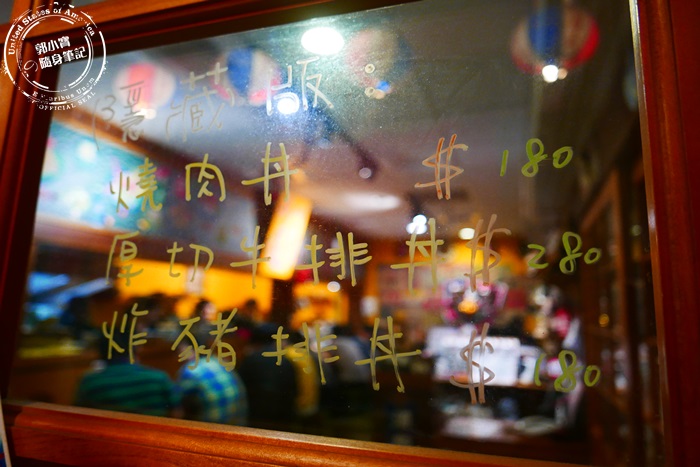 United States of America
郭小寶
の隨身筆記
E Pluribus Unum
OFFICIAL SEAL
隱藏版：
燒肉丼 $180
厚切牛排丼 $280
炸豬排丼 $180